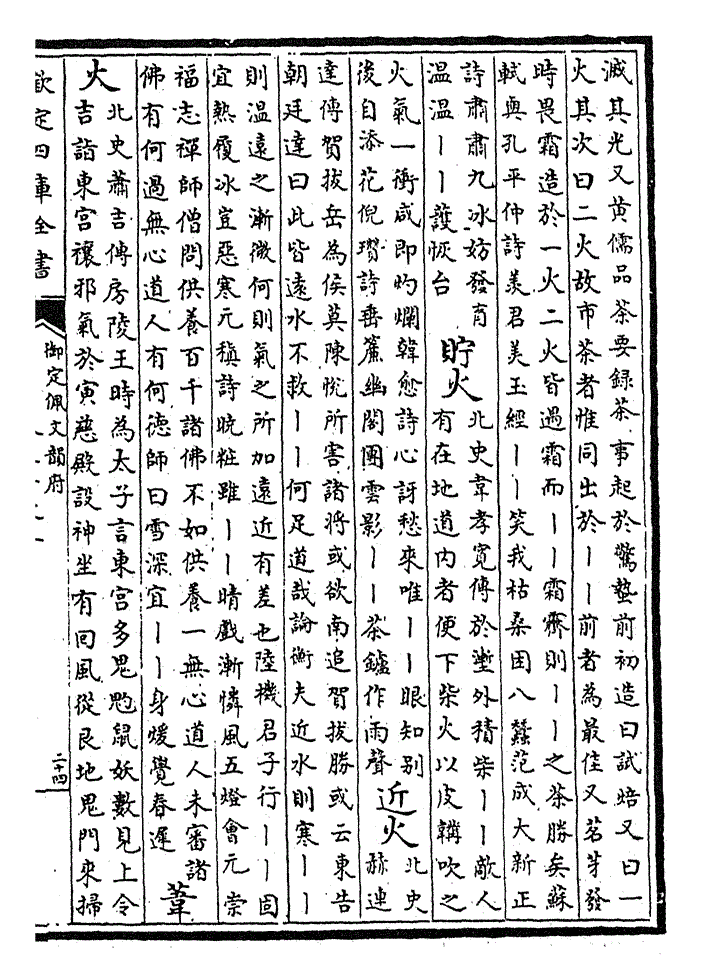 滅其光又黄儒品茶要録茶事起於驚蟄前初造曰試焙又曰一
火其次曰二火故市茶者惟同出於丨丨前者為最佳又茗芽發
時畏霜造於一火二火皆遇霜而丨丨霜霽則丨丨之茶勝矣蘇
軾與孔平仲詩羨君美玉經丨丨笑我枯桑困八蠶范成大新正
詩肅肅九冰妨發育
温温丨丨護恢台
貯火
北史韋孝寛傳於塹外積柴丨丨敵人
有在地道内者便下柴火以皮韝吹之
火氣一衝咸即灼爛韓愈詩心訝愁來唯丨丨眼知别
後自添花倪瓚詩垂簾幽閣團雲影丨丨茶鑪作雨聲
近火
北史
赫連
達傳賀拔岳為侯莫陳悦所害諸將或欲南追賀拔勝或云東告
朝廷達曰此皆遠水不救丨丨何足道哉論衡夫近水則寒丨丨
則温遠之漸微何則氣之所加遠近有差也陸機君子行丨丨固
宜熱履冰豈惡寒元稹詩晚粧雖丨丨晴戲漸憐風五燈會元崇
福志禪師僧問供養百千諸佛不如供養一無心道人未審諸
佛有何過無心道人有何德師曰雪深宜丨丨身暖覺春遲
葦
火
北史蕭吉傳房陵王時為太子言東宫多鬼魅鼠妖數見上令
吉詣東宫禳邪氣於宣慈殿設神坐有回風從艮地鬼門來掃
欽定四庫全書
御定佩文韻府
二十四